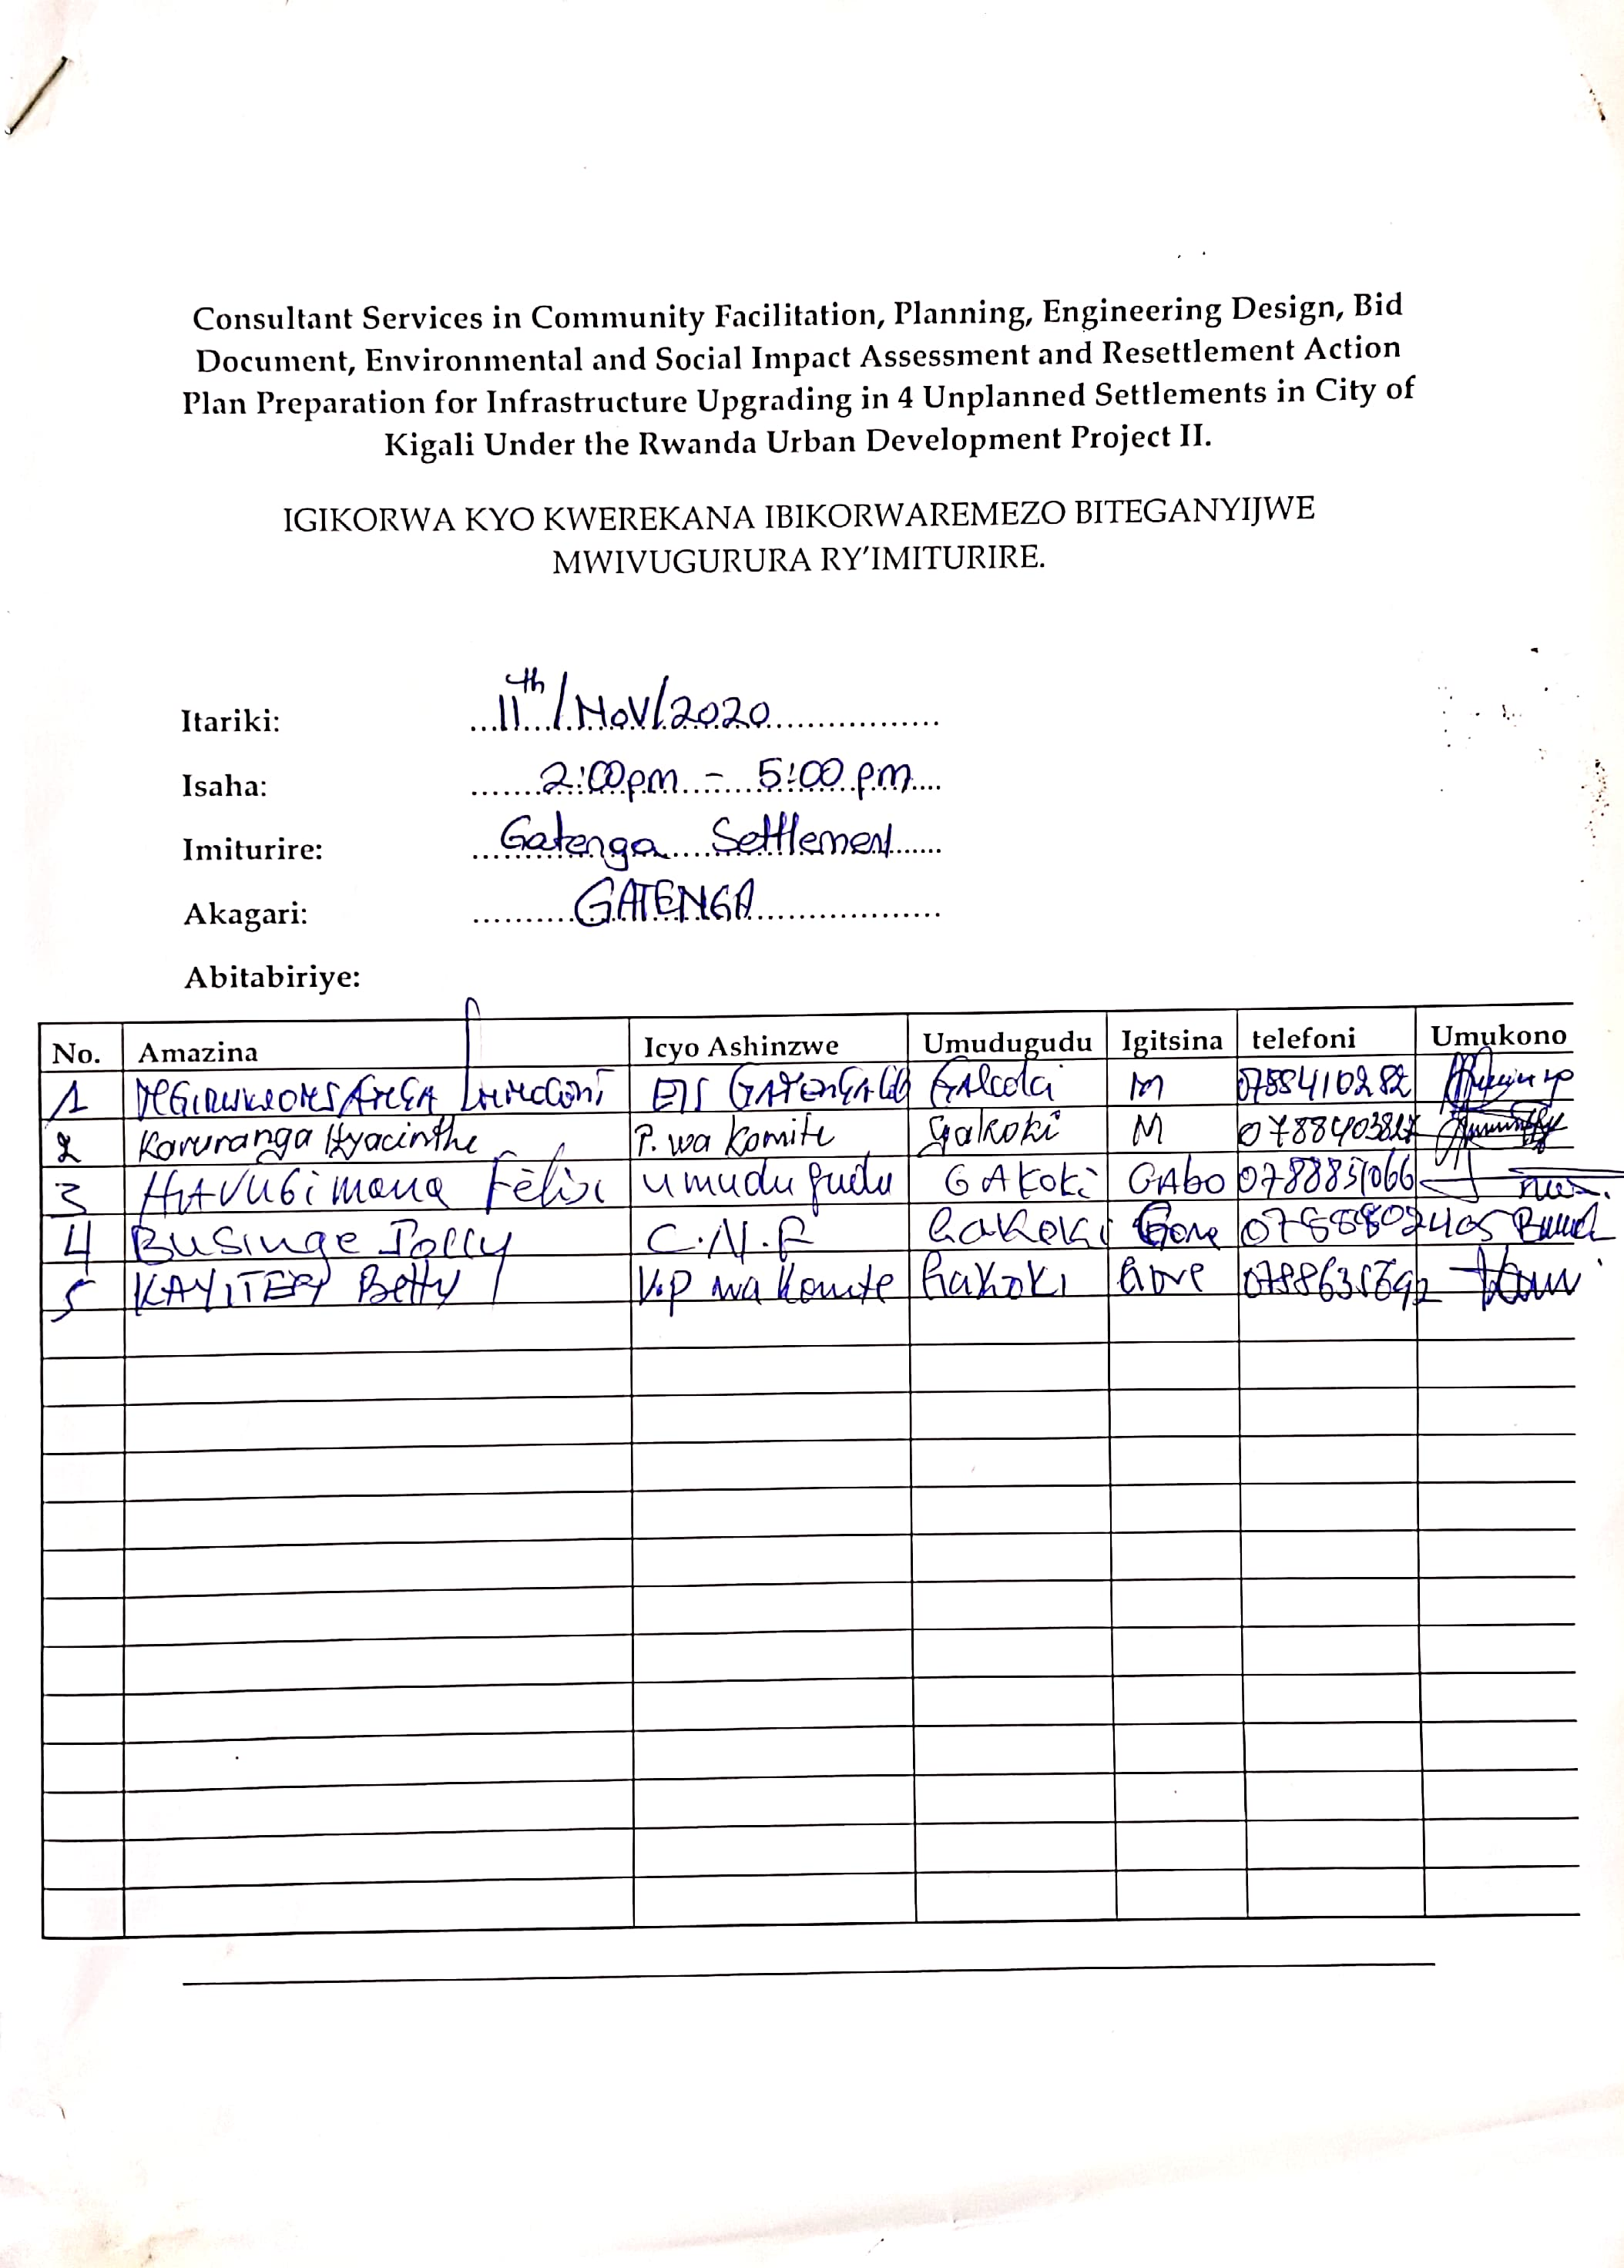 Consultant Services in Community Facilitation, Planning, Engineering Design, Bid
Document, Environmental and Social Impact Assessment and Resettlement Action
Plan Preparation for Infrastructure Upgrading in 4 Unplanned Settlements in City of
Kigali Under the Rwanda Urban Development Project II.
IGIKORWA KYO KWEREKANA IBIKORWAREMEZO BITEGANYIJWE
MWIVUGURURA RY'IMITURIRE.
Itariki: 11th/Nov/2020
Isaha: 2:00pm - 5:00 pm
Imiturire: Gatenga Settlement
Akagari: GATENGA
Abitabiriye:
No. Amazina Icyo Ashinzwe Umudugudu Igitsina telefoni Umukono
1 M 0788410282
2 Karuranga Hyacinthe P. wa Komite Gakoki M
3 HAVUGimana Félix umudugudu GAkoki GAbo 0788851066
4 Businge Jolly Gakoki Gore 0788802405
5 KAYITESY Betty V.P wa Komite Gakoki Gore